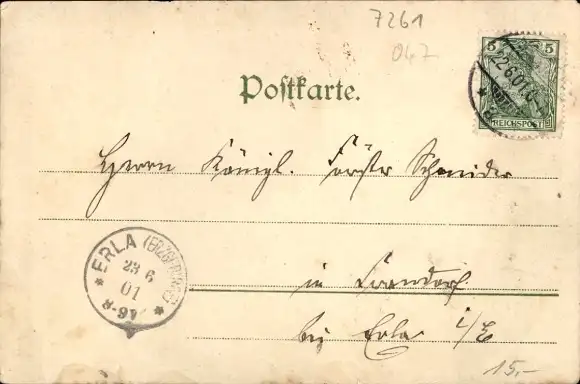 7261
047
5 5
22.6.01.
REICHSPOST
Postkarte.
Herrn Königl. Förster Schneider
ERLA (ERZGEBIRGE)
23 6
01
8-9V
in
bei Erla i/E
15,-